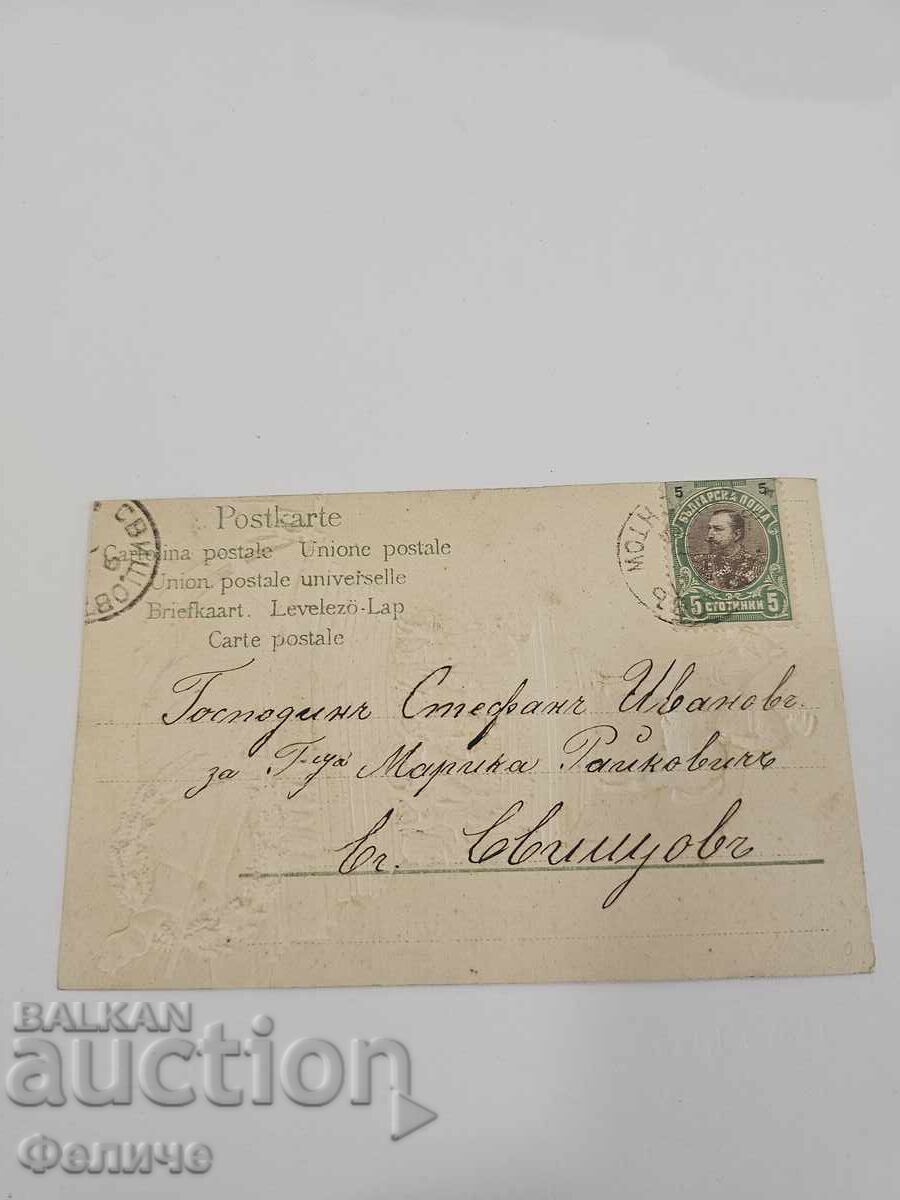 СВИЩОВЪ
Postkarte
Cartolina postale Unione postale
Union postale universelle
Briefkaart. Levelező-Lap
Carte postale
5 5
БЪЛГАРСКА ПОЩА
5 СТОТИНКИ 5
Господинъ Стефанъ Ивановъ
за Г-ца Марика Райковичъ
Въ Свищовъ
BALKAN
auction
Феличе